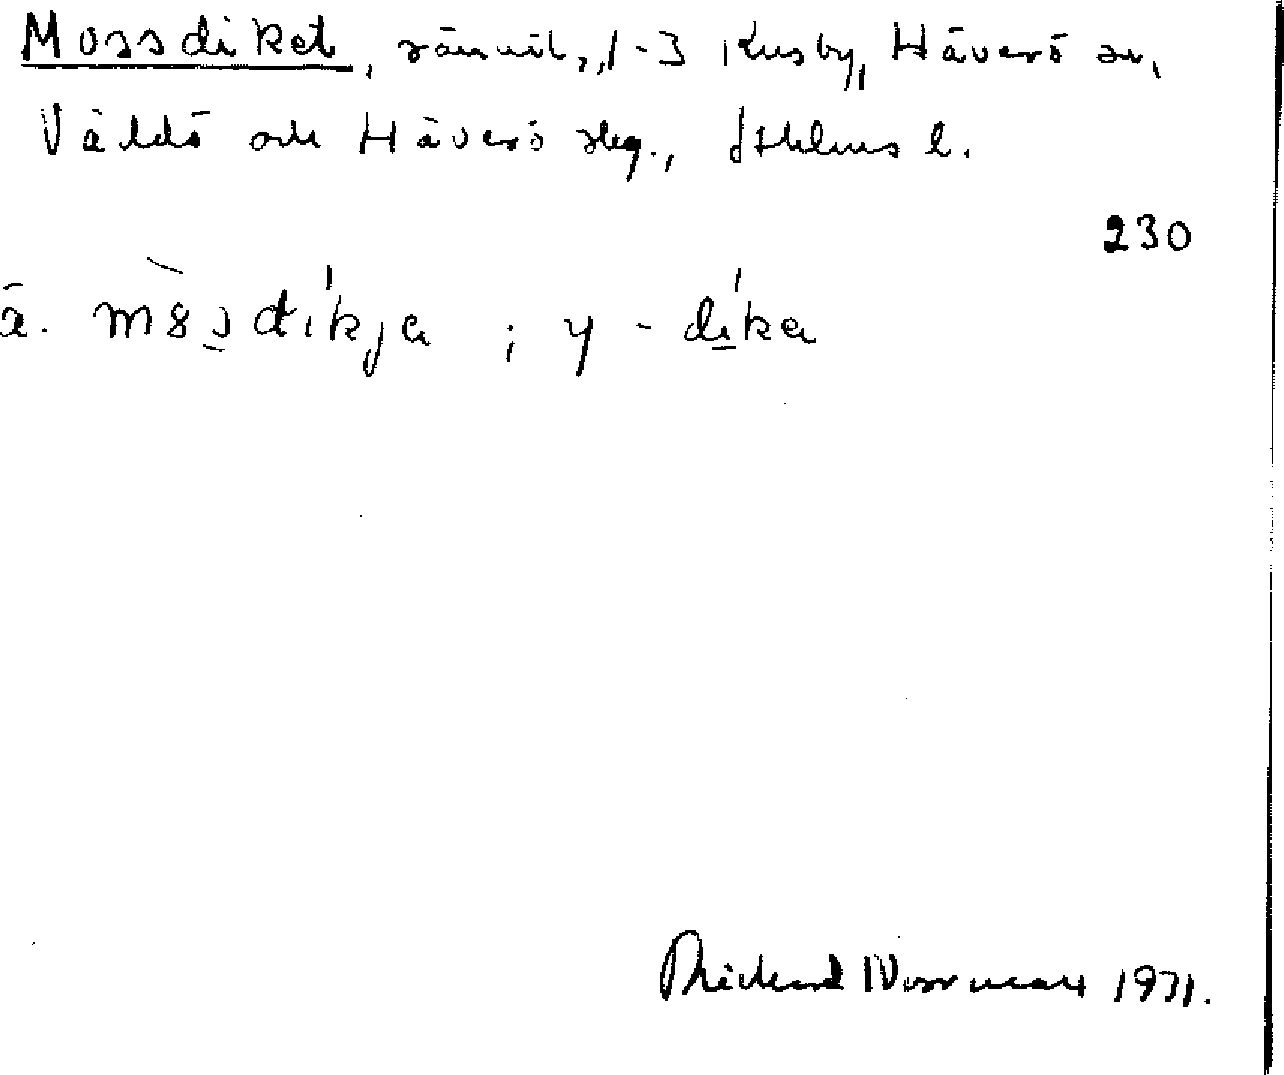 Mossdiket, rännil, 1-3 Kusby, Häverö sn,
Väddö och Häverö skg., Sthlms l.
230
ä. mòssdíkja ; y -díka
Rickard Norrman 1971.